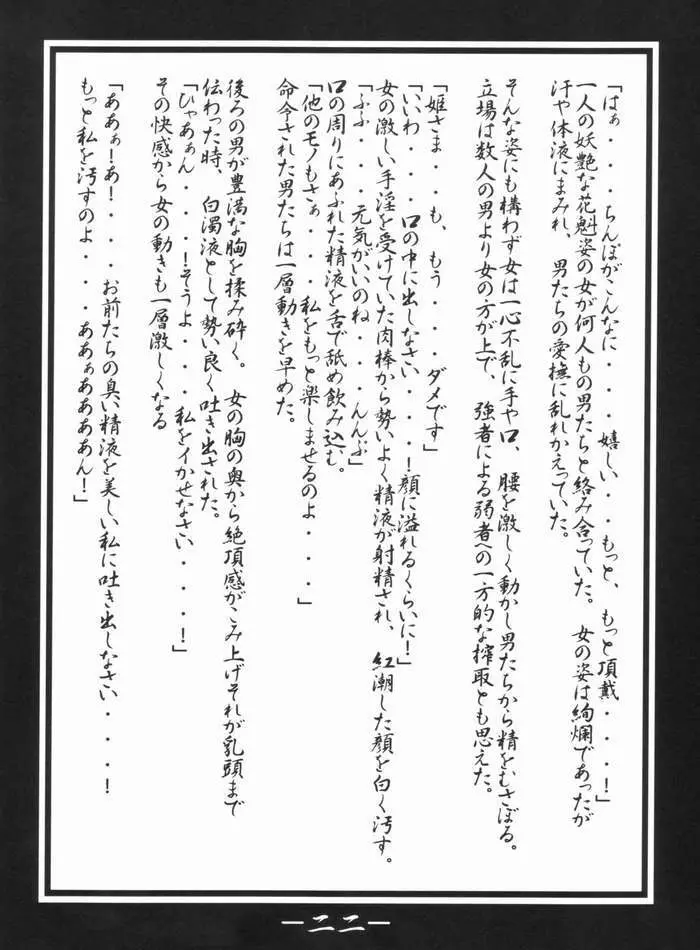 「はぁ・・・ちんぽがこんなに・・・嬉しい・・もっと、もっと頂戴・・・!」
一人の妖艶な花魁姿の女が何人もの男たちと絡み合っていた。女の姿は絢爛であったが
汗や体液にまみれ、男たちの愛撫に乱れかえっていた。
そんな姿にも構わず女は一心不乱に手や口、腰を激しく動かし男たちから精をむさぼる。
立場は数人の男より女の方が上で、強者による弱者への一方的な搾取とも思えた。
「姫さま・・も、もう・・・ダメです」
「いいわ・・・口の中に出しなさい・・・!顔に溢れるくらいに!」
女の激しい手淫を受けていた肉棒から勢いよく精液が射精され、紅潮した顔を白く汚す。
「ふふ・・・元気がいいのね・・・んんぶ」
口の周りにあふれた精液を舌で舐め飲み込む。
「他のモノもさぁ・・・私をもっと楽しませるのよ・・・」
命令された男たちは一層動きを早めた。
後ろの男が豊満な胸を揉み砕く。女の胸の奥から絶頂感がこみ上げそれが乳頭まで
伝わった時、白濁液として勢い良く吐き出された。
「ひゃあぁん・・・!そうよ・・・私をイかせなさい・・・!」
その快感から女の動きも一層激しくなる
「ああぁ!あ!・・・お前たちの臭い精液を美しい私に吐き出しなさい・・・!
もっと私を汚すのよ・・・ああぁああああん!」
－二二－